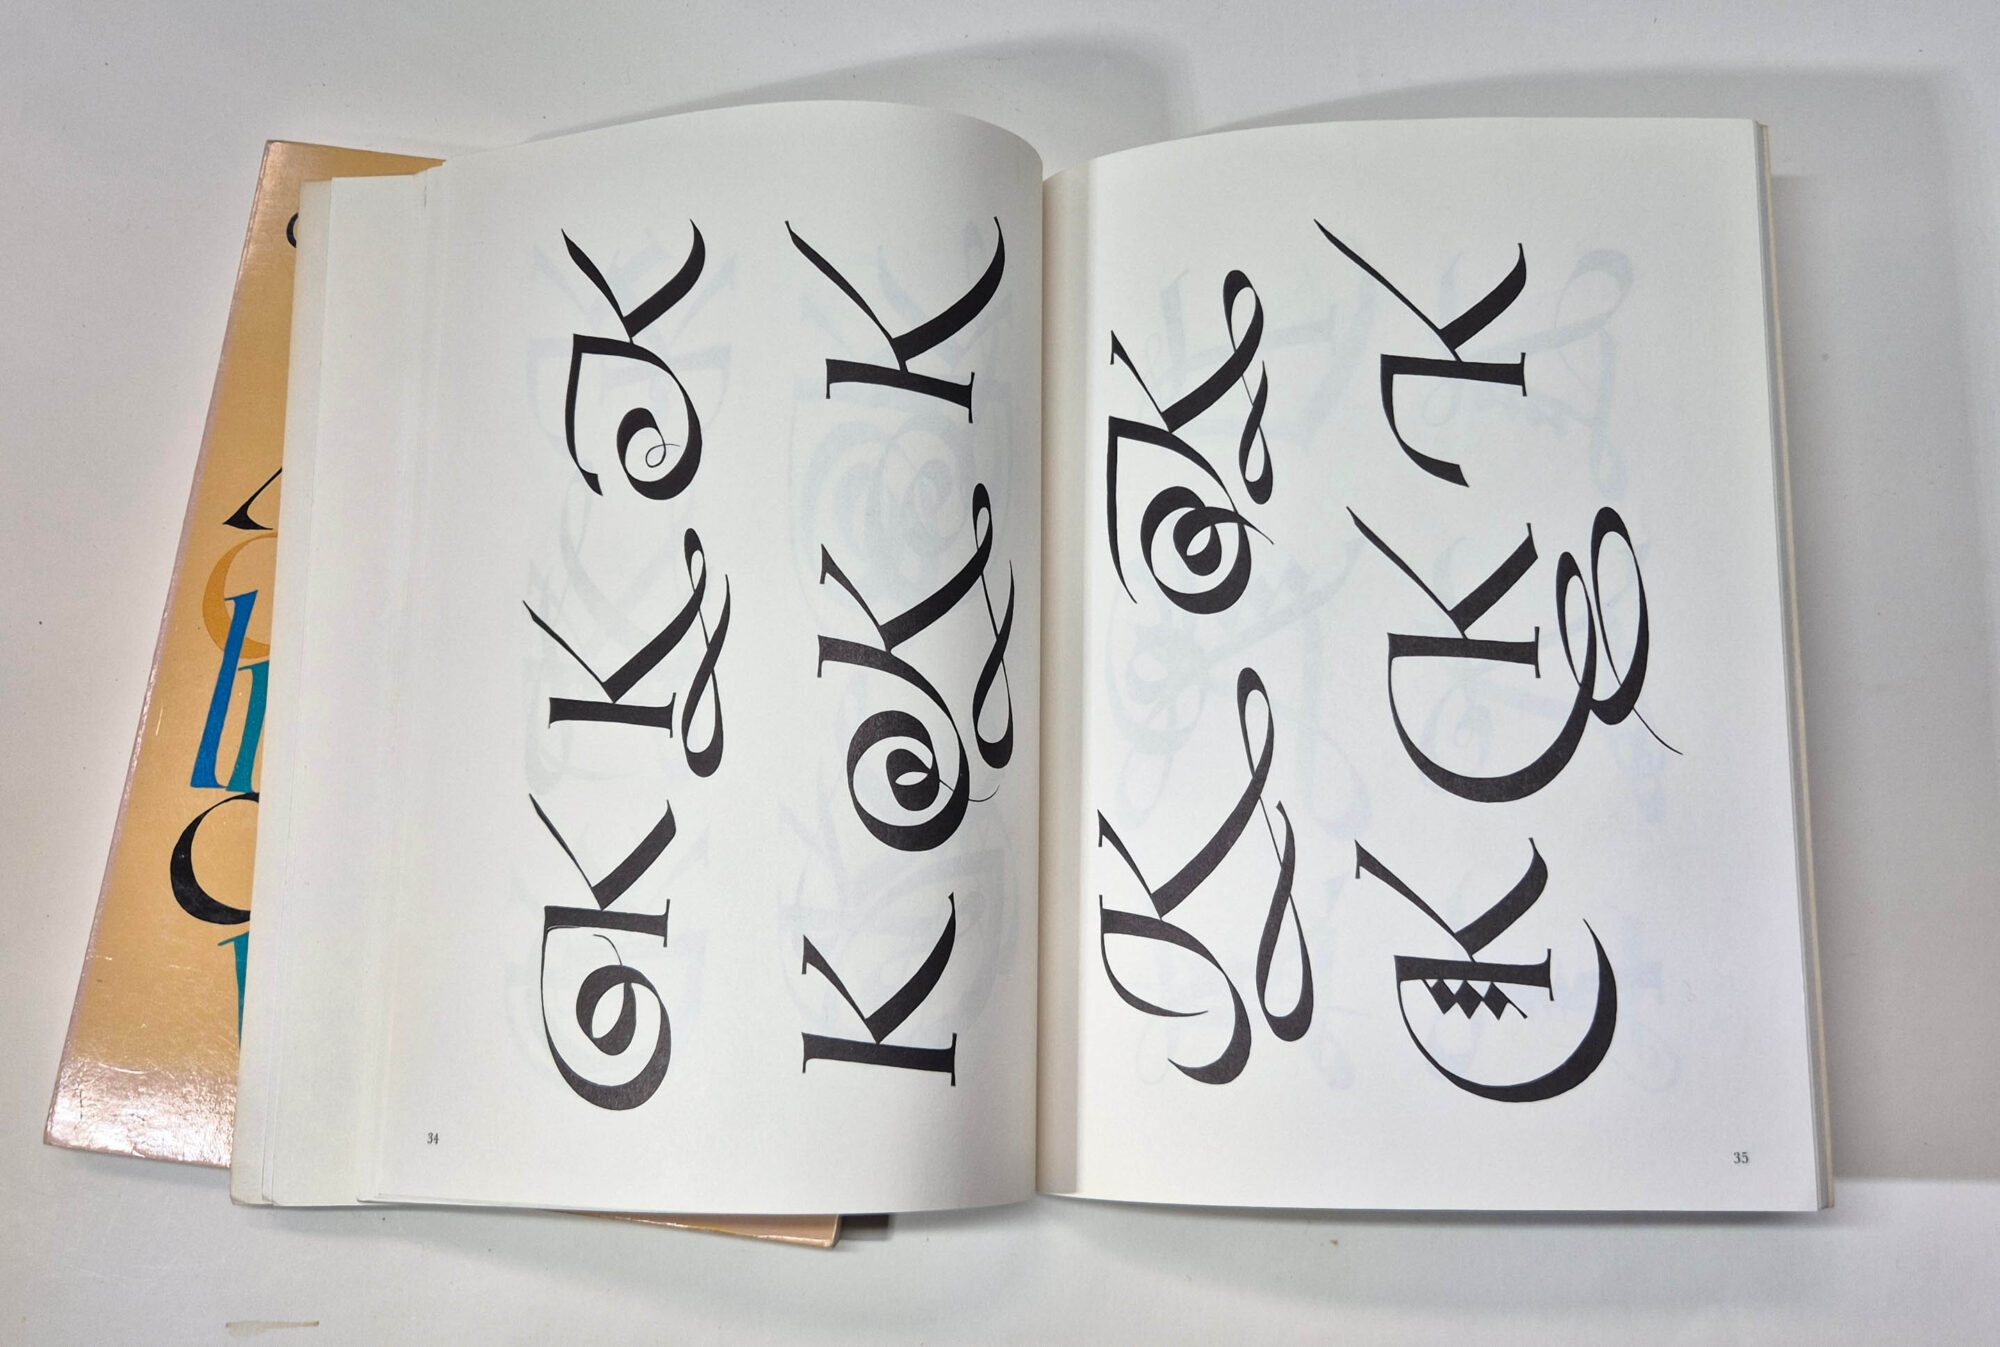 K K K
K K K
34
K K
K K K
35